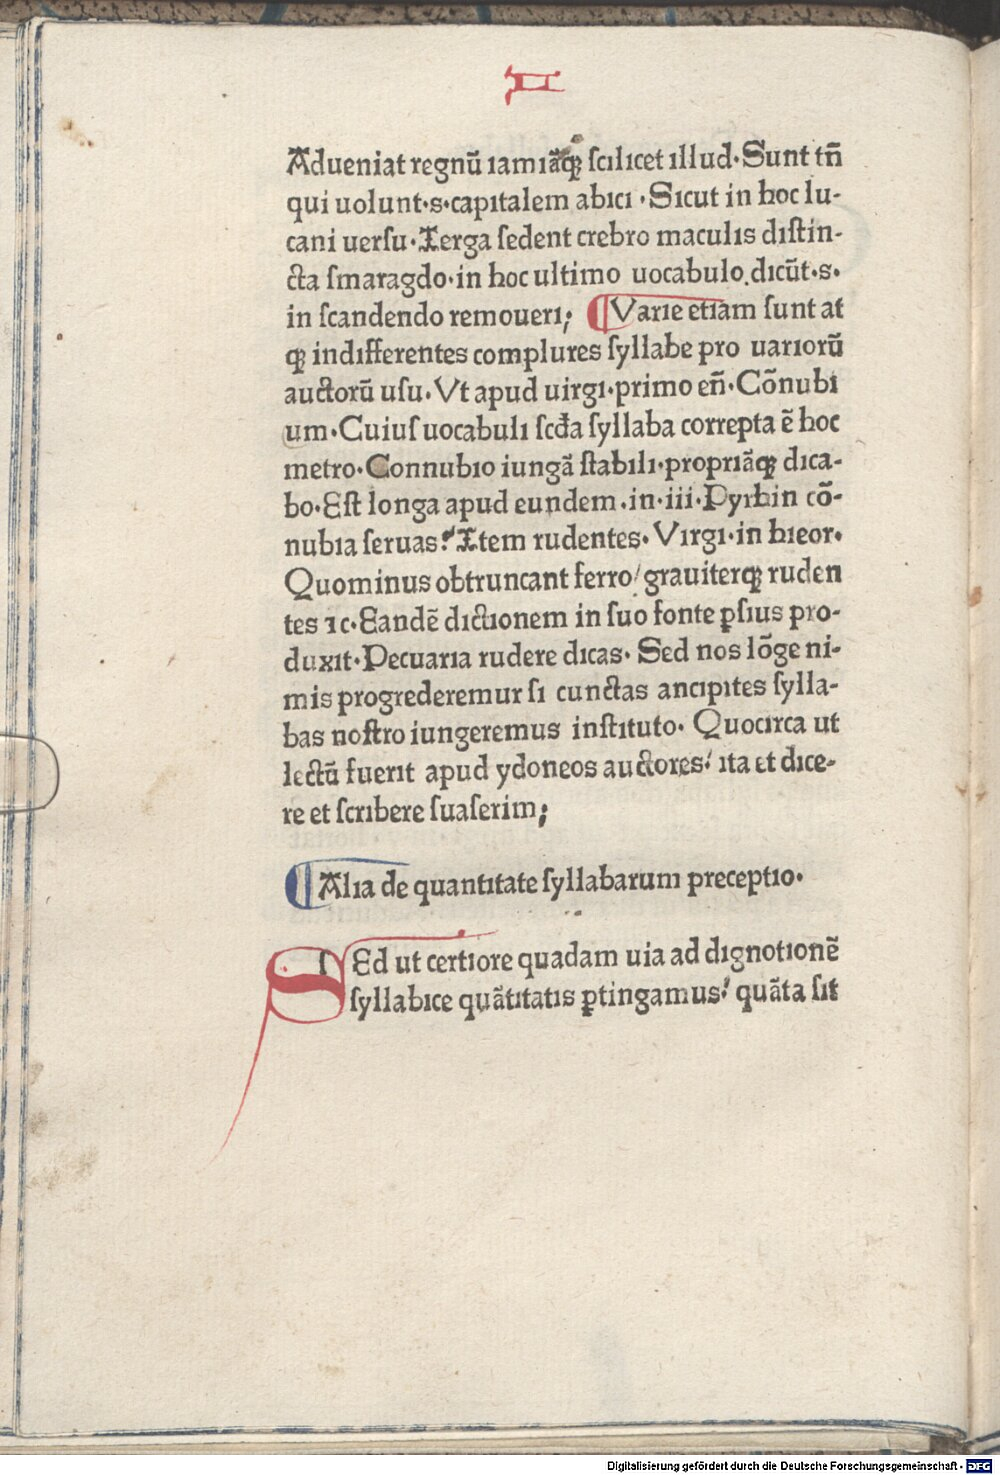 II
Adueniat regnū iamiāqꝫ ſcilicet illud·Sunt tn̄
qui uolunt·s·capitalem abici ·Sicut in hoc lu-
cani uerſu·Terga ſedent crebro maculis diſtin-
cta ſmaragdo·in hoc ultimo uocabulo dicūt·s·
in ſcandendo remoueri; ¶Varie etiam ſunt at
qꝫ indifferentes complures ſyllabe pro uariorū
auctorū uſu·Vt apud uirgi·primo en̄·Cōnubi
um·Cuiuſ uocabuli ſcd̄a ſyllaba correpta ē hoc
metro·Connubio iungā ſtabili·propriāqꝫ dica-
bo·Eſt longa apud eundem·in·iii·Pyrhin cō-
nubia ſeruas? Item rudentes· Virgi·in hieor·
Quominus obtruncant ferro/ grauiterqꝫ ruden
tes ꝛc·Eandē dictionem in ſuo fonte ꝑſius pro-
duxit·Pecuaria rudere dicas· Sed nos lōge ni-
mis progrederemur ſi cunctas ancipites ſylla-
bas noſtro iungeremus inſtituto· Quocirca ut
lectū fuerit apud ydoneos auctores/ ita et dice-
re et ſcribere ſuaſerim;
¶ Alia de quantitate ſyllabarum preceptio·
SEd ut certiore quadam uia ad dignotionē
ſyllabice quātitatis ꝑtingamus/ quāta ſit
Digitalisierung gefördert durch die Deutsche Forschungsgemeinschaft - DFG